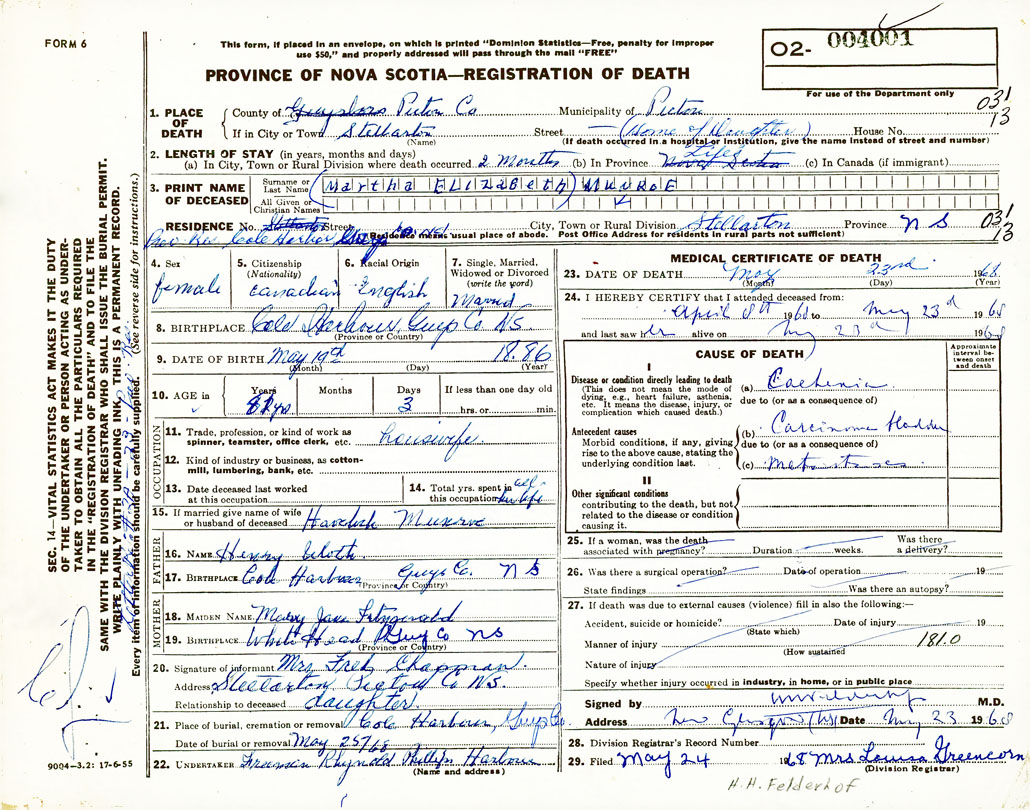 FORM 6
This form, if placed in an envelope, on which is printed "Dominion Statistics—Free, penalty for improper
use $50," and properly addressed will pass through the mail "FREE"
PROVINCE OF NOVA SCOTIA—REGISTRATION OF DEATH
O2- 004001
For use of the Department only
03 1/13
1. PLACE OF DEATH
County of Guysboro Pictou Co Municipality of Pictou
If in City or Town Stellarton Street — (Home of Daughter) House No.
(Name) (If death occurred in a hospital or institution, give the name instead of street and number)
2. LENGTH OF STAY (in years, months and days)
(a) In City, Town or Rural Division where death occurred 2 Months (b) In Province Life Nova Scotia (c) In Canada (if immigrant)
3. PRINT NAME OF DECEASED
Surname or Last Name (Martha ELIZABETH) MUNROE
All Given or Christian Names
RESIDENCE No. Street City, Town or Rural Division Stellarton Province N S 03 1/13
Cole Harbor Residence means usual place of abode. Post Office Address for residents in rural parts not sufficient)
4. Sex female
5. Citizenship (Nationality) Canadian
6. Racial Origin English
7. Single, Married, Widowed or Divorced (write the word) Married
8. BIRTHPLACE Cole Harbour, Guys Co. N.S.
(Province or Country)
9. DATE OF BIRTH May 19th 1886
(Month) (Day) (Year)
10. AGE in Years Months Days 3 If less than one day old hrs. or min.
OCCUPATION
11. Trade, profession, or kind of work as spinner, teamster, office clerk, etc. housewife
12. Kind of industry or business, as cotton-mill, lumbering, bank, etc.
13. Date deceased last worked at this occupation
14. Total yrs. spent in this occupation all her life
15. If married give name of wife or husband of deceased Munroe
FATHER
16. NAME Henry
17. BIRTHPLACE Cole Harbour Guys Co. N S
(Province or Country)
MOTHER
18. MAIDEN NAME Mary Jane Fitzgerald
19. BIRTHPLACE White Head Guy Co NS
(Province or Country)
20. Signature of informant Mrs Fred Chapman.
Address Stellarton Pictou Co N.S.
Relationship to deceased daughter.
21. Place of burial, cremation or removal Cole Harbour, Guys Co.
Date of burial or removal May 25/68
22. UNDERTAKER Freeman Harbour
(Name and address)
MEDICAL CERTIFICATE OF DEATH
23. DATE OF DEATH May 23rd 1968
(Month) (Day) (Year)
24. I HEREBY CERTIFY that I attended deceased from:
April 8th 1968 to May 23rd 1968
and last saw her alive on May 23rd 1968
CAUSE OF DEATH
Approximate interval between onset and death
I
Disease or condition directly leading to death (a) Cachexia
(This does not mean the mode of dying, e.g., heart failure, asthenia, etc. It means the disease, injury, or complication which caused death.)
due to (or as a consequence of)
Antecedent causes (b) Carcinoma bladder
Morbid conditions, if any, giving rise to the above cause, stating the underlying condition last.
due to (or as a consequence of)
(c) Metastases
II
Other significant conditions contributing to the death, but not related to the disease or condition causing it.
25. If a woman, was the death associated with pregnancy? Duration weeks. Was there a delivery?
26. Was there a surgical operation? Date of operation 19
State findings Was there an autopsy?
27. If death was due to external causes (violence) fill in also the following:—
Accident, suicide or homicide? Date of injury 19
(State which)
Manner of injury 181.0
(How sustained
Nature of injury
Specify whether injury occurred in industry, in home, or in public place
Signed by M.D.
Address New Glasgow (NS) Date May 23 1968
28. Division Registrar's Record Number
29. Filed May 24 1968 Mrs Louisa Greencorn
(Division Registrar)
H.H. Felderhof
SEC. 14—VITAL STATISTICS ACT MAKES IT THE DUTY
OF THE UNDERTAKER OR PERSON ACTING AS UNDER-
TAKER TO OBTAIN ALL THE PARTICULARS REQUIRED
IN THE "REGISTRATION OF DEATH" AND TO FILE THE
SAME WITH THE DIVISION REGISTRAR WHO SHALL ISSUE THE BURIAL PERMIT.
WRITE PLAINLY WITH UNFADING INK. THIS IS A PERMANENT RECORD.
Every item of information should be carefully supplied. (See reverse side for instructions.)
9004—3.2: 17-6-55